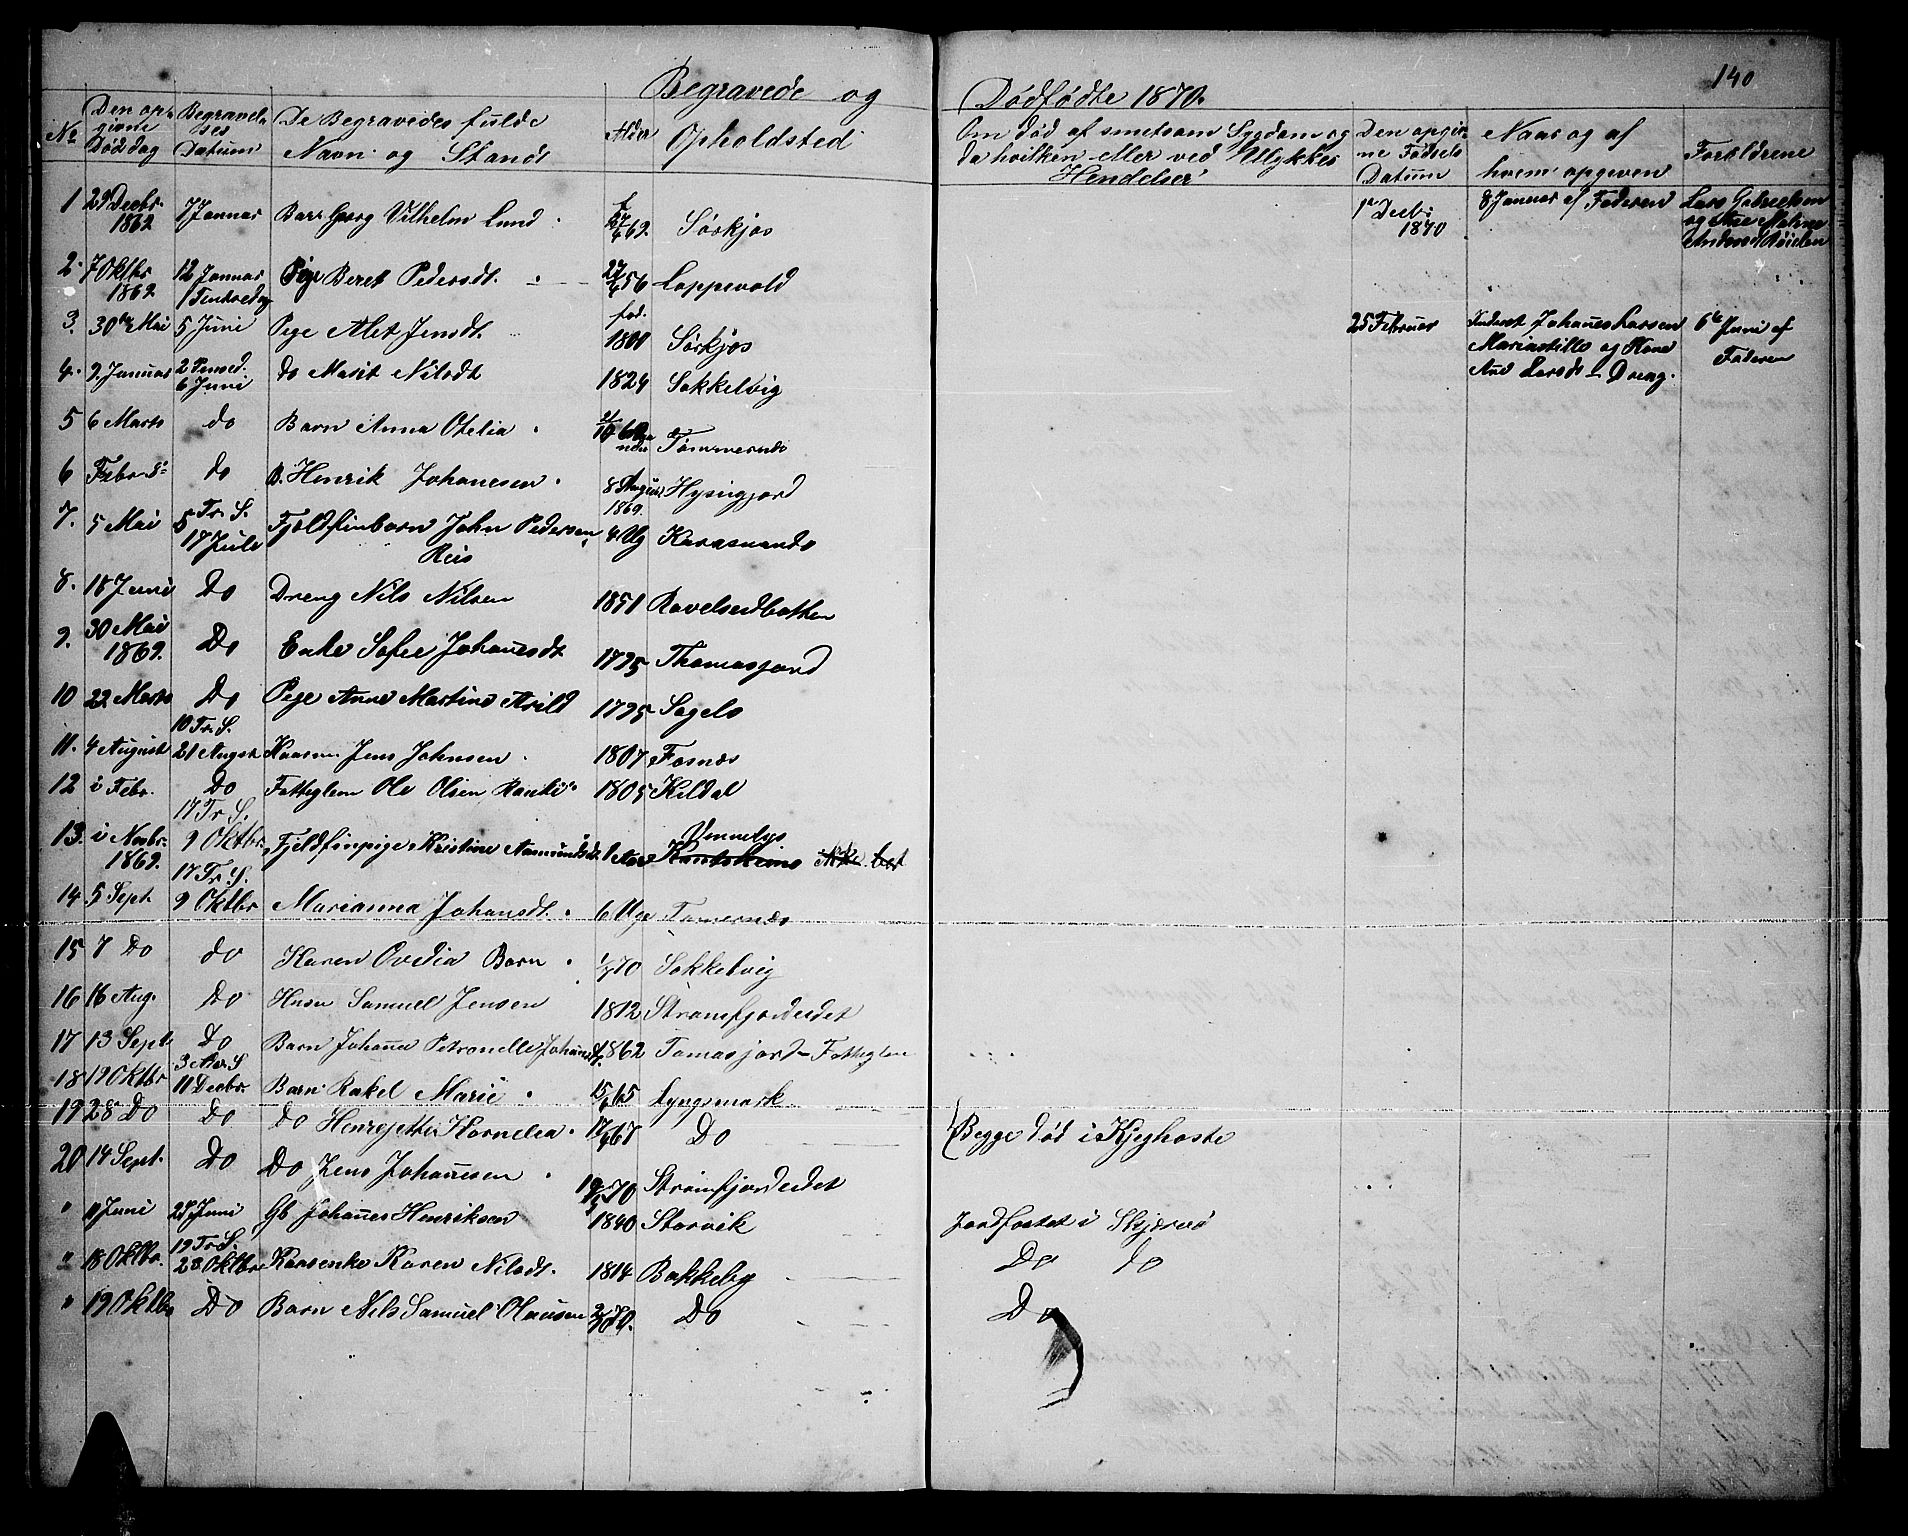 140
Begravede og Dødfødte 1870.
No Den opgivne Dødsdag Begravelses Datum De Begravedes fulde Navn og Stand Alder Opholdsted
Om død af smetsom Sygdom og da hvilken eller ved Ulykkes Hendelser
Den opgivne Fødsels Datum Naar og af hvem opgiven Forældrene
1 29 Decbr. 1869 7 Januar Barn Georg Vilhelm Lund 69 Sørkjos
1 Decbr 1870 8 Januar af Faderen Lars Gabrielsen og Ane Malene Andersd
2. 7 Oktbr 1869 12 Januar Pige Beret Pedersdt. 56 Loppevold
3. 30te Mai 5 Juni Pige Alet Jensdt. fød. 1800 Sørkjos
25 Februar Johanes Larsen og Kone Ane Larsdt. Dreng. 6te Juni af Faderen
4. 9. Januar 6 Juni do Marit Nilsdt 1824 Sokkelvig
5 6 Marts do Barn Anna Otelia Tømmernæs
6 Febr do B. Henrik Johanesen 8 August 1869. Hysingjord
7. 5 Mai 5 Tr. S. 17 Juli Fjeldfinbarn John Pedersen Reis 4 Ug
8. 18 Juni Do Dreng Nils Nilsen 1851 Ravelseidbotten
9. 30 Mai 1869. Do Enke Sofie Johanesdt 1795 Thomasjord
10 22 Marts Do Pige Anne Martine Arild 1795 Sagels
11. 4 August 10 Tr. S. 21 Augst. Jens Johnsen 1807 Fosnæs
12 i Febr. Do Fatteglem Ole Olsen 1805 Kildal
13. i Novbr. 1869. 17 Tr. S. 9 Oktbr. Fjeldfinpige Kristine Aamundsdt. 1 Aar
14 5 Sept. 17 Tr. S. 9 Oktbr Marianna Johansdt. 6 Uge Tomernæs
15 7 Do do Karen Ovedia Barn 70 Sokkelvig
16 16 Aug. Do Husm Samuel Jensen 1812 Stromfjordeidet
17 13 Sept Do Barn Johana Petronelle 1862 Tomasjord Fatteglem
18 19 Oktbr 3 Adv. S. 11 Decbr. Barn Rakel Marie 15/ 65 Lyngsmark
19 28 Do Do Do Henrejette Kornelia 67 Do Begge død i Kjeghoste
20 14 Sept. Do Do Jens Johanesen 70 Stromfjordeidet
" 11 Juni 28 Juni Gb Johanes Henriksen 1840 Storvik Jordfæstet i Skjærvø
" 18 Oktbr. 19 Tr. S. 23 Oktbr Karen Nilsdt. 1814 Bakkeby Do do
" 19 Oktbr Do Barn Nils Samuel Olausen Do Do